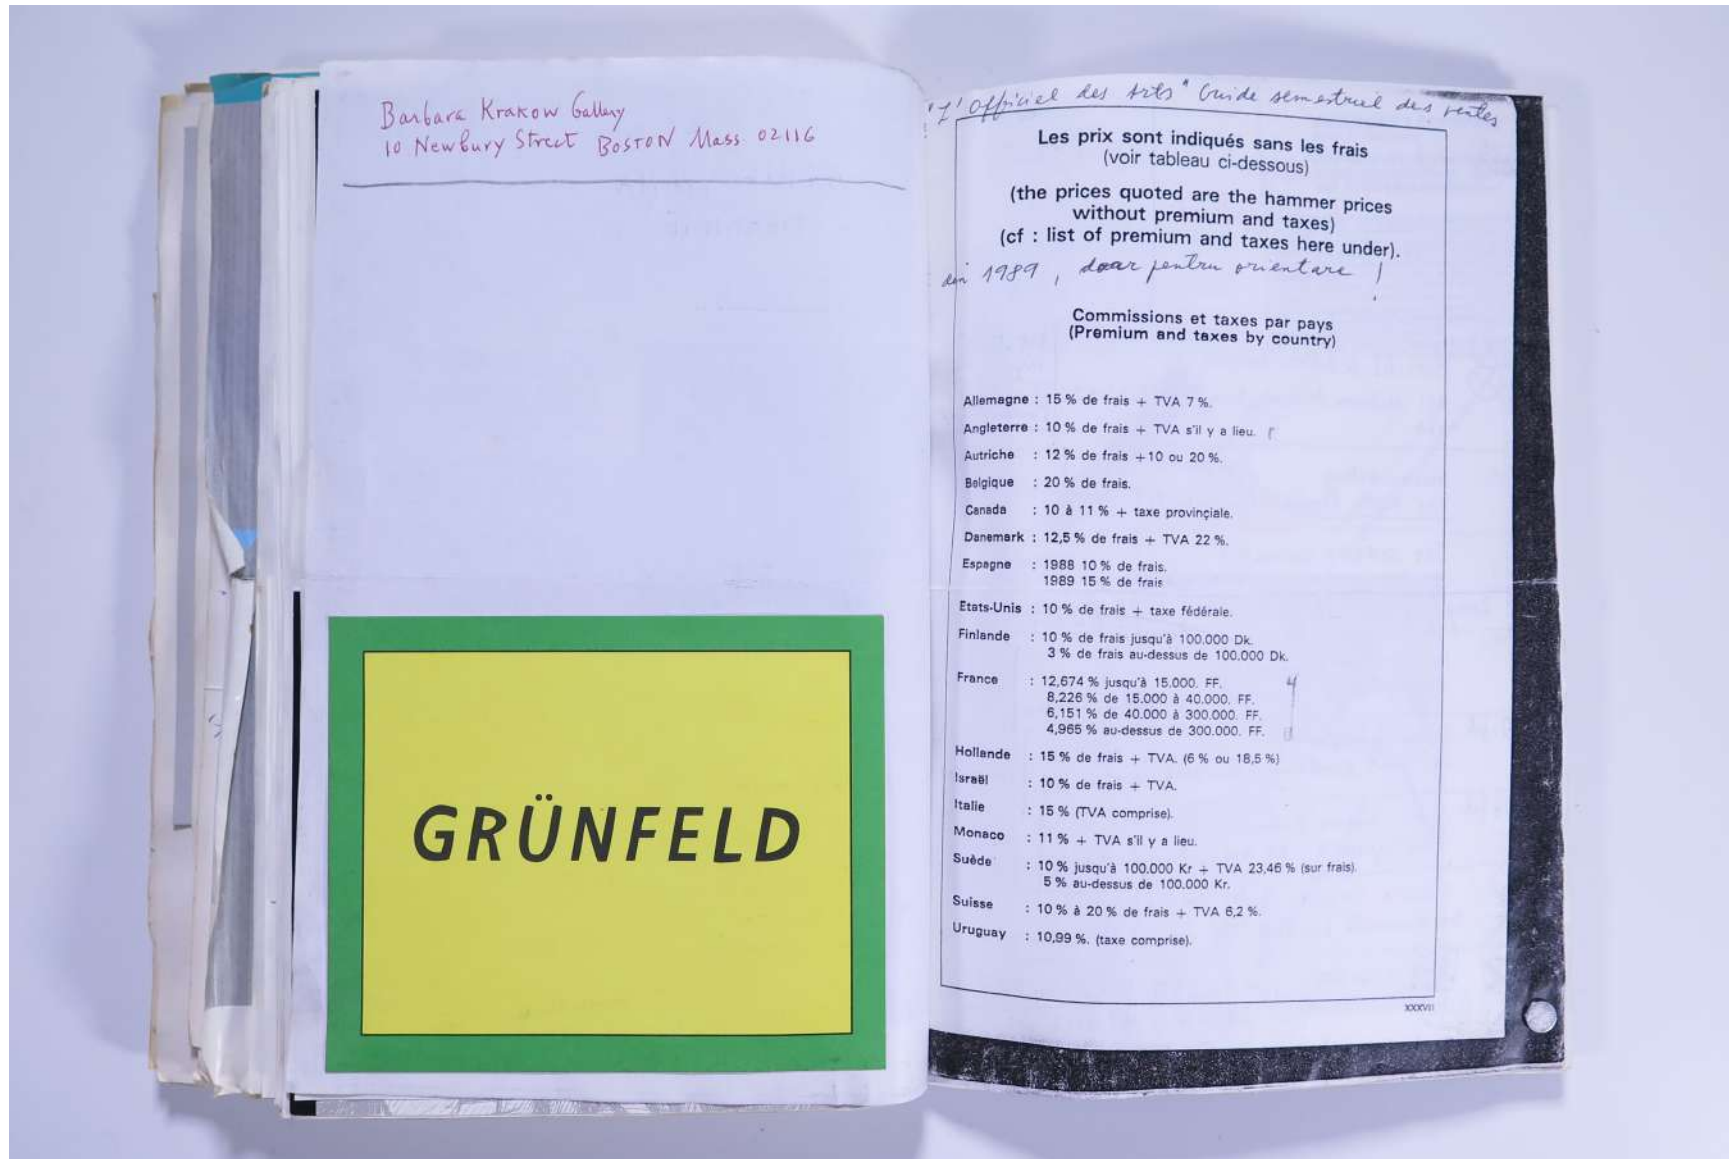 Barbara Krakow Gallery
10 Newbury Street BOSTON Mass 02116
GRÜNFELD
"L'Officiel des Arts" Guide semestriel des ventes
Les prix sont indiqués sans les frais
(voir tableau ci-dessous)
(the prices quoted are the hammer prices
without premium and taxes)
(cf : list of premium and taxes here under).
din 1989, doar pentru orientare !
Commissions et taxes par pays
(Premium and taxes by country)
Allemagne : 15 % de frais + TVA 7 %.
Angleterre : 10 % de frais + TVA s'il y a lieu.
Autriche : 12 % de frais +10 ou 20 %.
Belgique : 20 % de frais.
Canada : 10 à 11 % + taxe provinçiale.
Danemark : 12,5 % de frais + TVA 22 %.
Espagne : 1988 10 % de frais.
1989 15 % de frais
Etats-Unis : 10 % de frais + taxe fédérale.
Finlande : 10 % de frais jusqu'à 100.000 Dk.
3 % de frais au-dessus de 100.000 Dk.
France : 12,674 % jusqu'à 15.000. FF.
8,226 % de 15.000 à 40.000. FF.
6,151 % de 40.000 à 300.000. FF.
4,965 % au-dessus de 300.000. FF.
Hollande : 15 % de frais + TVA. (6 % ou 18,5 %)
Israël : 10 % de frais + TVA.
Italie : 15 % (TVA comprise).
Monaco : 11 % + TVA s'il y a lieu.
Suède : 10 % jusqu'à 100.000 Kr + TVA 23,46 % (sur frais).
5 % au-dessus de 100.000 Kr.
Suisse : 10 % à 20 % de frais + TVA 6,2 %.
Uruguay : 10,99 %. (taxe comprise).
XXXVII